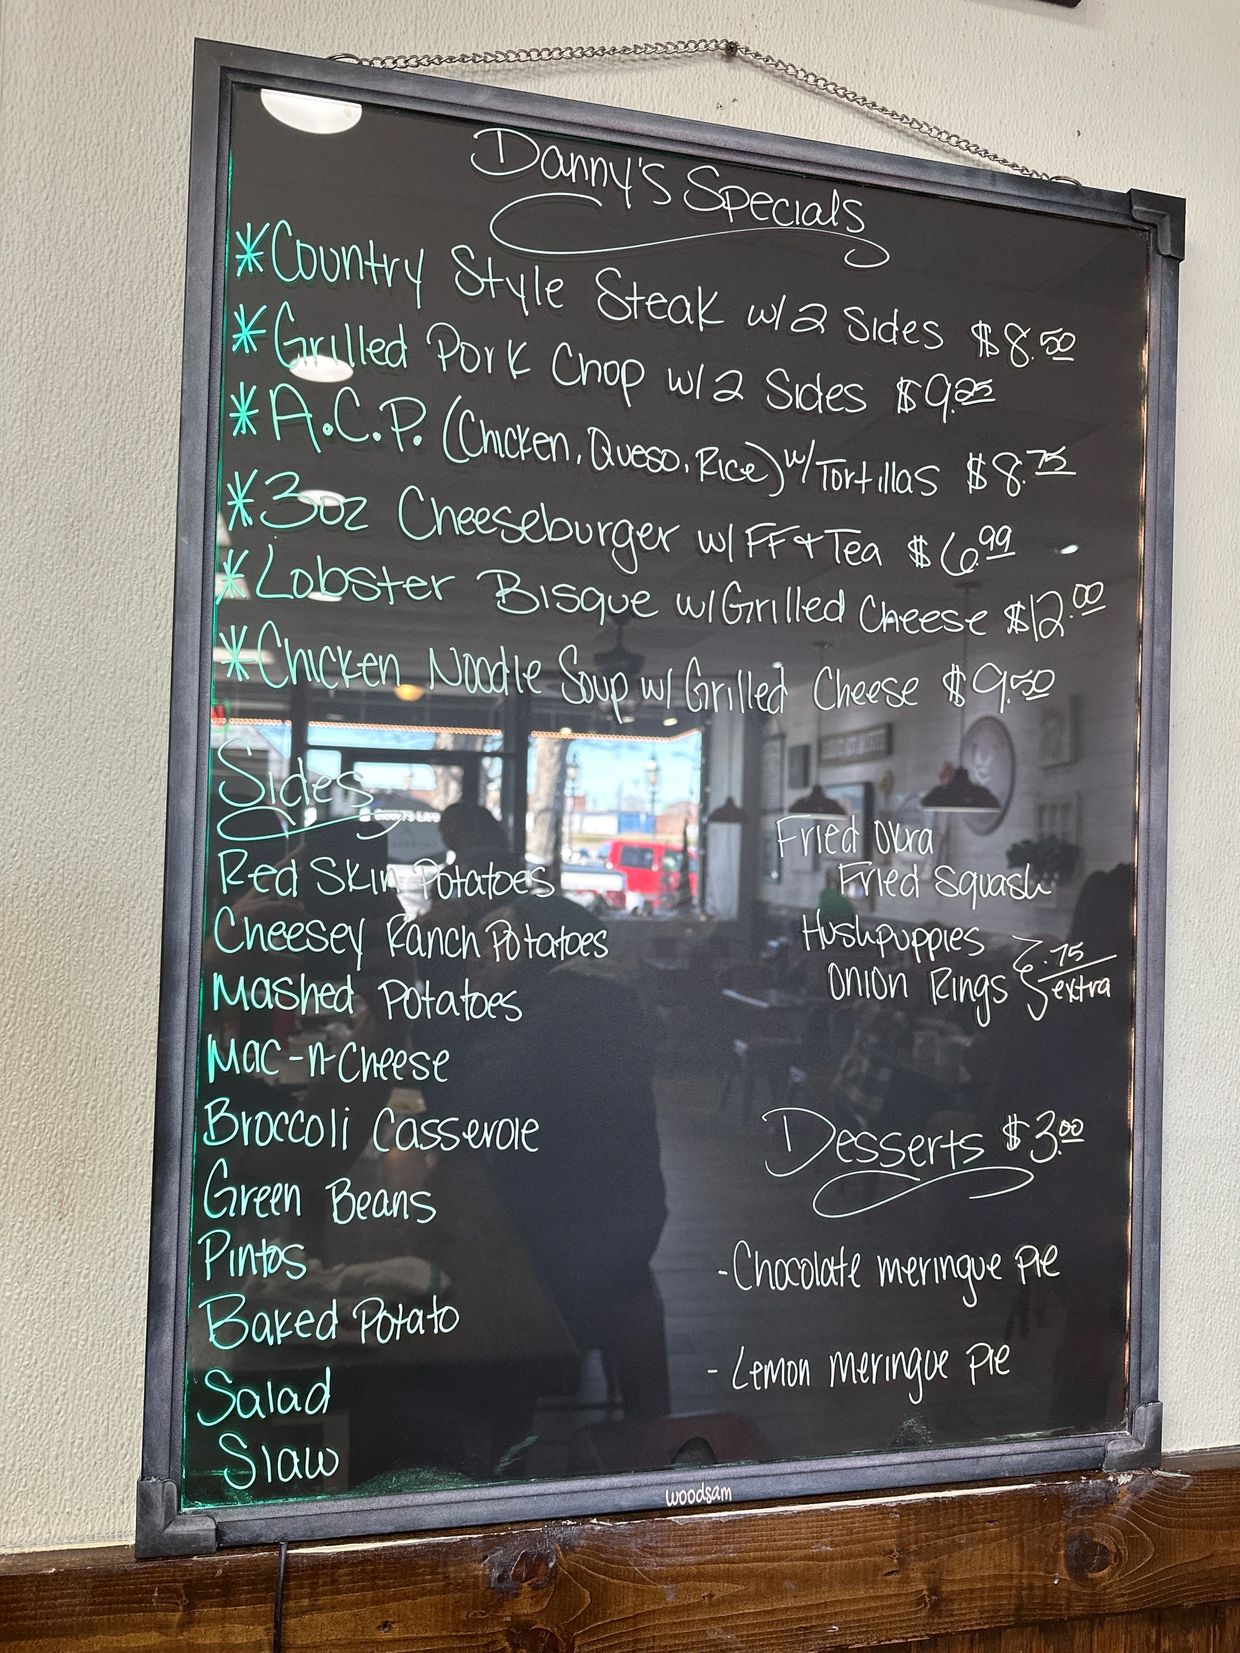 Danny's Specials
*Country Style Steak w/2 Sides $8.50
*Grilled Pork Chop w/2 Sides $9.25
*A.C.P. (Chicken, Queso, Rice) w/ Tortillas $8.75
*3oz Cheeseburger w/ FF + Tea $6.99
*Lobster Bisque w/Grilled Cheese $12.00
*Chicken Noodle Soup w/ Grilled Cheese $9.50
Sides
Red Skin Potatoes
Cheesey Ranch Potatoes
Mashed Potatoes
Mac-n-Cheese
Broccoli Casserole
Green Beans
Pintos
Baked Potato
Salad
Slaw
Fried Okra
Fried Squash
Hushpuppies
Onion Rings
.75
extra
Desserts $3.00
-Chocolate meringue pie
- Lemon meringue pie
woodsam